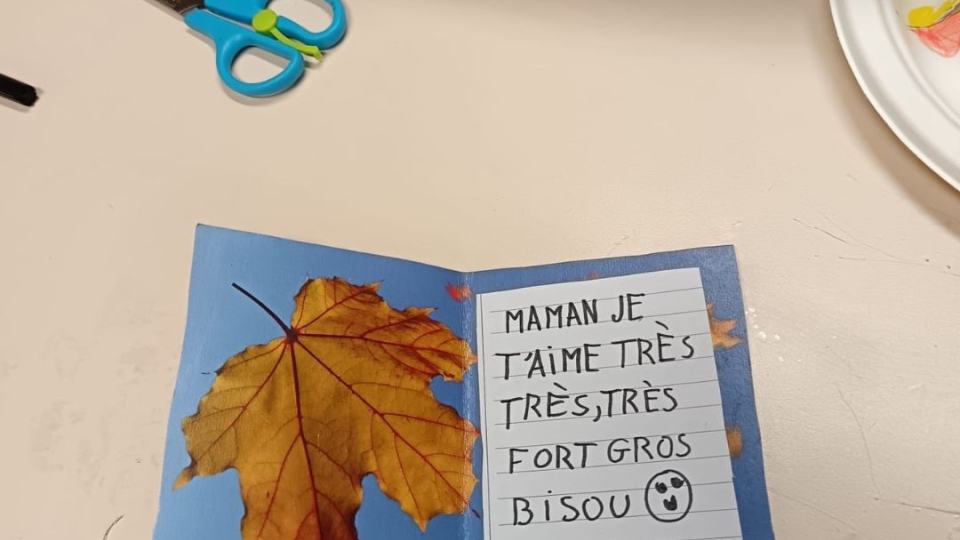 MAMAN JE
T'AiME TRÈS
TRÈS,TRÈS
FORT GROS
BiSOU